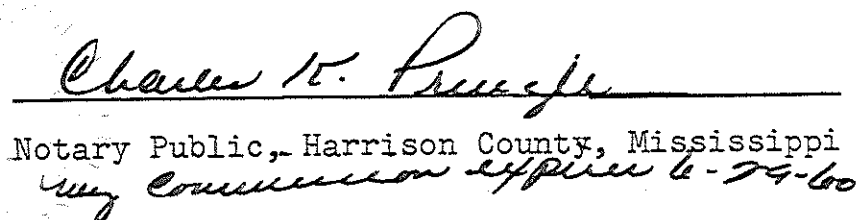 Charles K. Pringle
Notary Public, Harrison County, Mississippi
My Commission expires 6-29-60